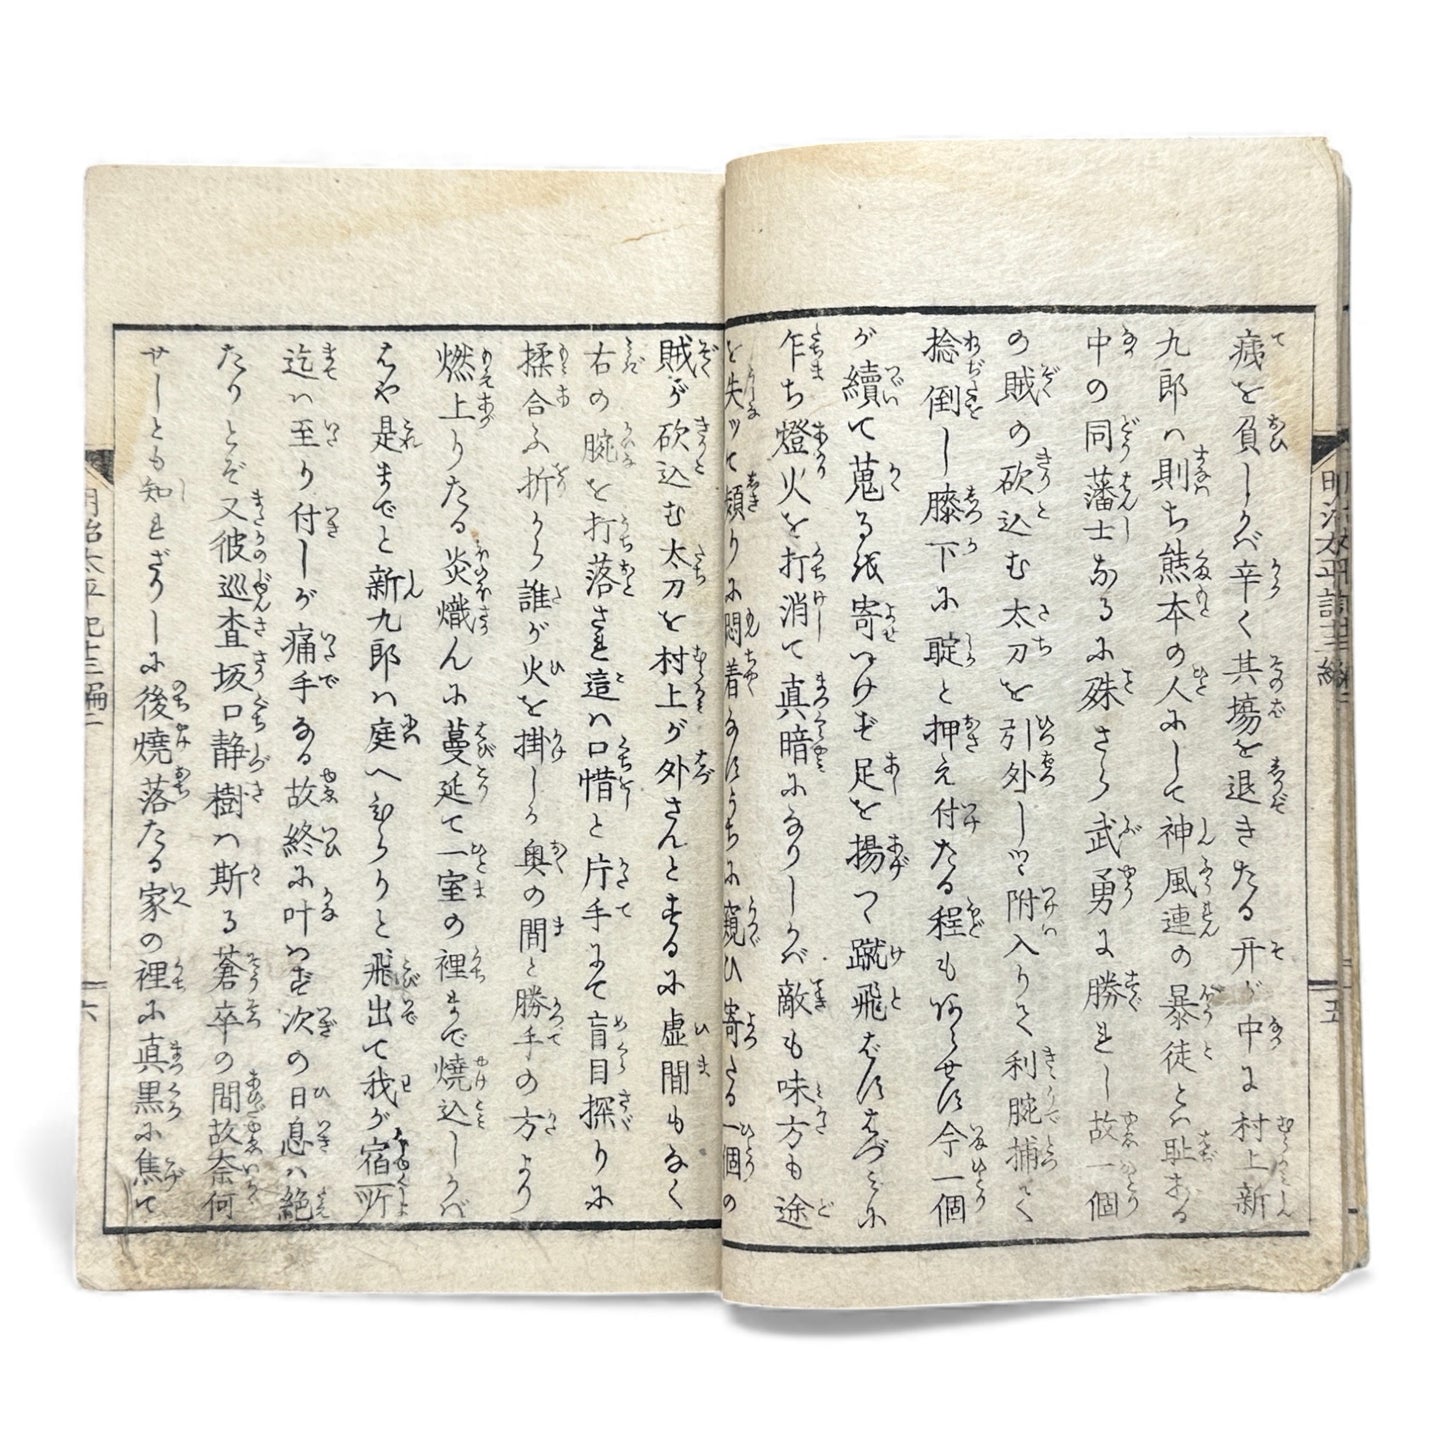 痍を負しかバ辛く其塲を退きたる开が中に村上新
九郎ハ則ち熊本の人にして神風連の暴徒とハ恥ある
中の同藩士なるに殊さら武勇に勝れし故一個
の賊の砍込む太刀を引外しツヽ附入りて利腕捕て
捻倒し膝下に聢と押え付たる程もあらせず今一個
が續て蒐るを寄つけず足を揚て蹴飛ばすはづみに
乍ち燈火を打消て真暗になりしかバ敵も味方も途
を失ッて頻りに悶着なすうちに窺ひ寄たる一個の
賊が砍込む太刀を村上が外さんとするに虚間もなく
右の腕を打落され這ハ口惜と片手にて盲目探りに
揉合ふ折から誰が火を掛しか奥の間と勝手の方より
燃上りたる炎熾んに蔓延て一室の裡まで焼込しかバ
はや是までと新九郎ハ庭へひらりと飛出て我が宿所
迄ハ至り付しが痛手なる故終に叶ハず次の日息ハ絶
たりとぞ又彼巡査坂口静樹ハ斯る蒼卒の間故奈何
せしとも知れざりしに後焼落たる家の裡に真黒に焦て
明治太平記十三編二
六
五